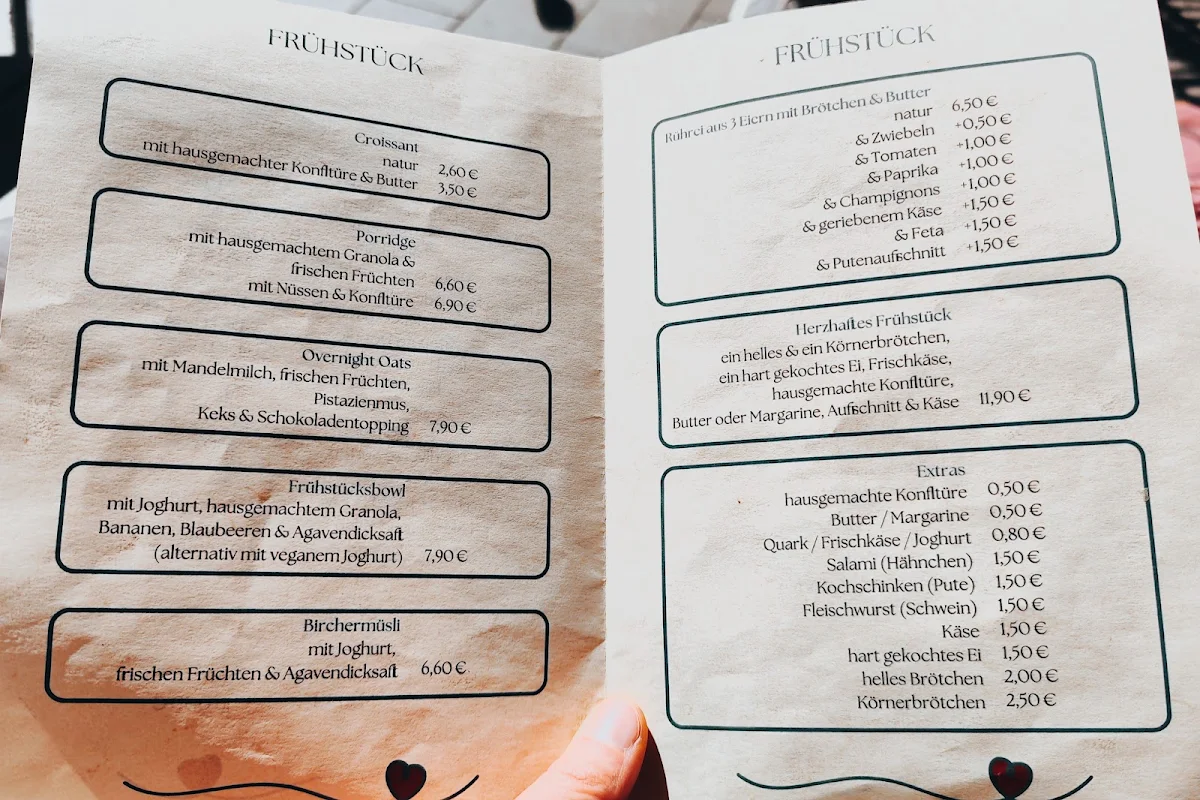 FRÜHSTÜCK
Croissant
natur 2,60 €
mit hausgemachter Konfitüre & Butter 3,50 €
Porridge
mit hausgemachtem Granola &
frischen Früchten 6,60 €
mit Nüssen & Konfitüre 6,90 €
Overnight Oats
mit Mandelmilch, frischen Früchten,
Pistazienmus,
Keks & Schokoladentopping 7,90 €
Frühstücksbowl
mit Joghurt, hausgemachtem Granola,
Bananen, Blaubeeren & Agavendicksaft
(alternativ mit veganem Joghurt) 7,90 €
Birchermüsli
mit Joghurt,
frischen Früchten & Agavendicksaft 6,60 €
FRÜHSTÜCK
Rührei aus 3 Eiern mit Brötchen & Butter
natur 6,50 €
& Zwiebeln +0,50 €
& Tomaten +1,00 €
& Paprika +1,00 €
& Champignons +1,00 €
& geriebenem Käse +1,50 €
& Feta +1,50 €
& Putenaufschnitt +1,50 €
Herzhaftes Frühstück
ein helles & ein Körnerbrötchen,
ein hart gekochtes Ei, Frischkäse,
hausgemachte Konfitüre,
Butter oder Margarine, Aufschnitt & Käse 11,90 €
Extras
hausgemachte Konfitüre 0,50 €
Butter / Margarine 0,50 €
Quark / Frischkäse / Joghurt 0,80 €
Salami (Hähnchen) 1,50 €
Kochschinken (Pute) 1,50 €
Fleischwurst (Schwein) 1,50 €
Käse 1,50 €
hart gekochtes Ei 1,50 €
helles Brötchen 2,00 €
Körnerbrötchen 2,50 €